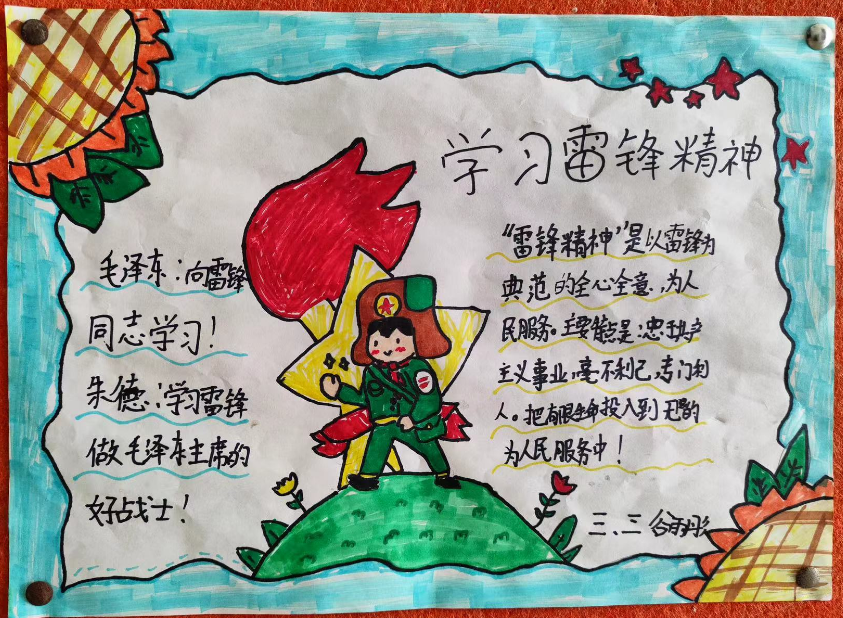 学习雷锋精神
毛泽东：向雷锋
同志学习！
朱德：学习雷锋
做毛泽东主席的
好战士！
“雷锋精神”是以雷锋为
典范的全心全意、为人
民服务。主要能点是：忠于共产
主义事业，毫不利己，专门利
人。把有限生命投入到无限的
为人民服务中！
三、三